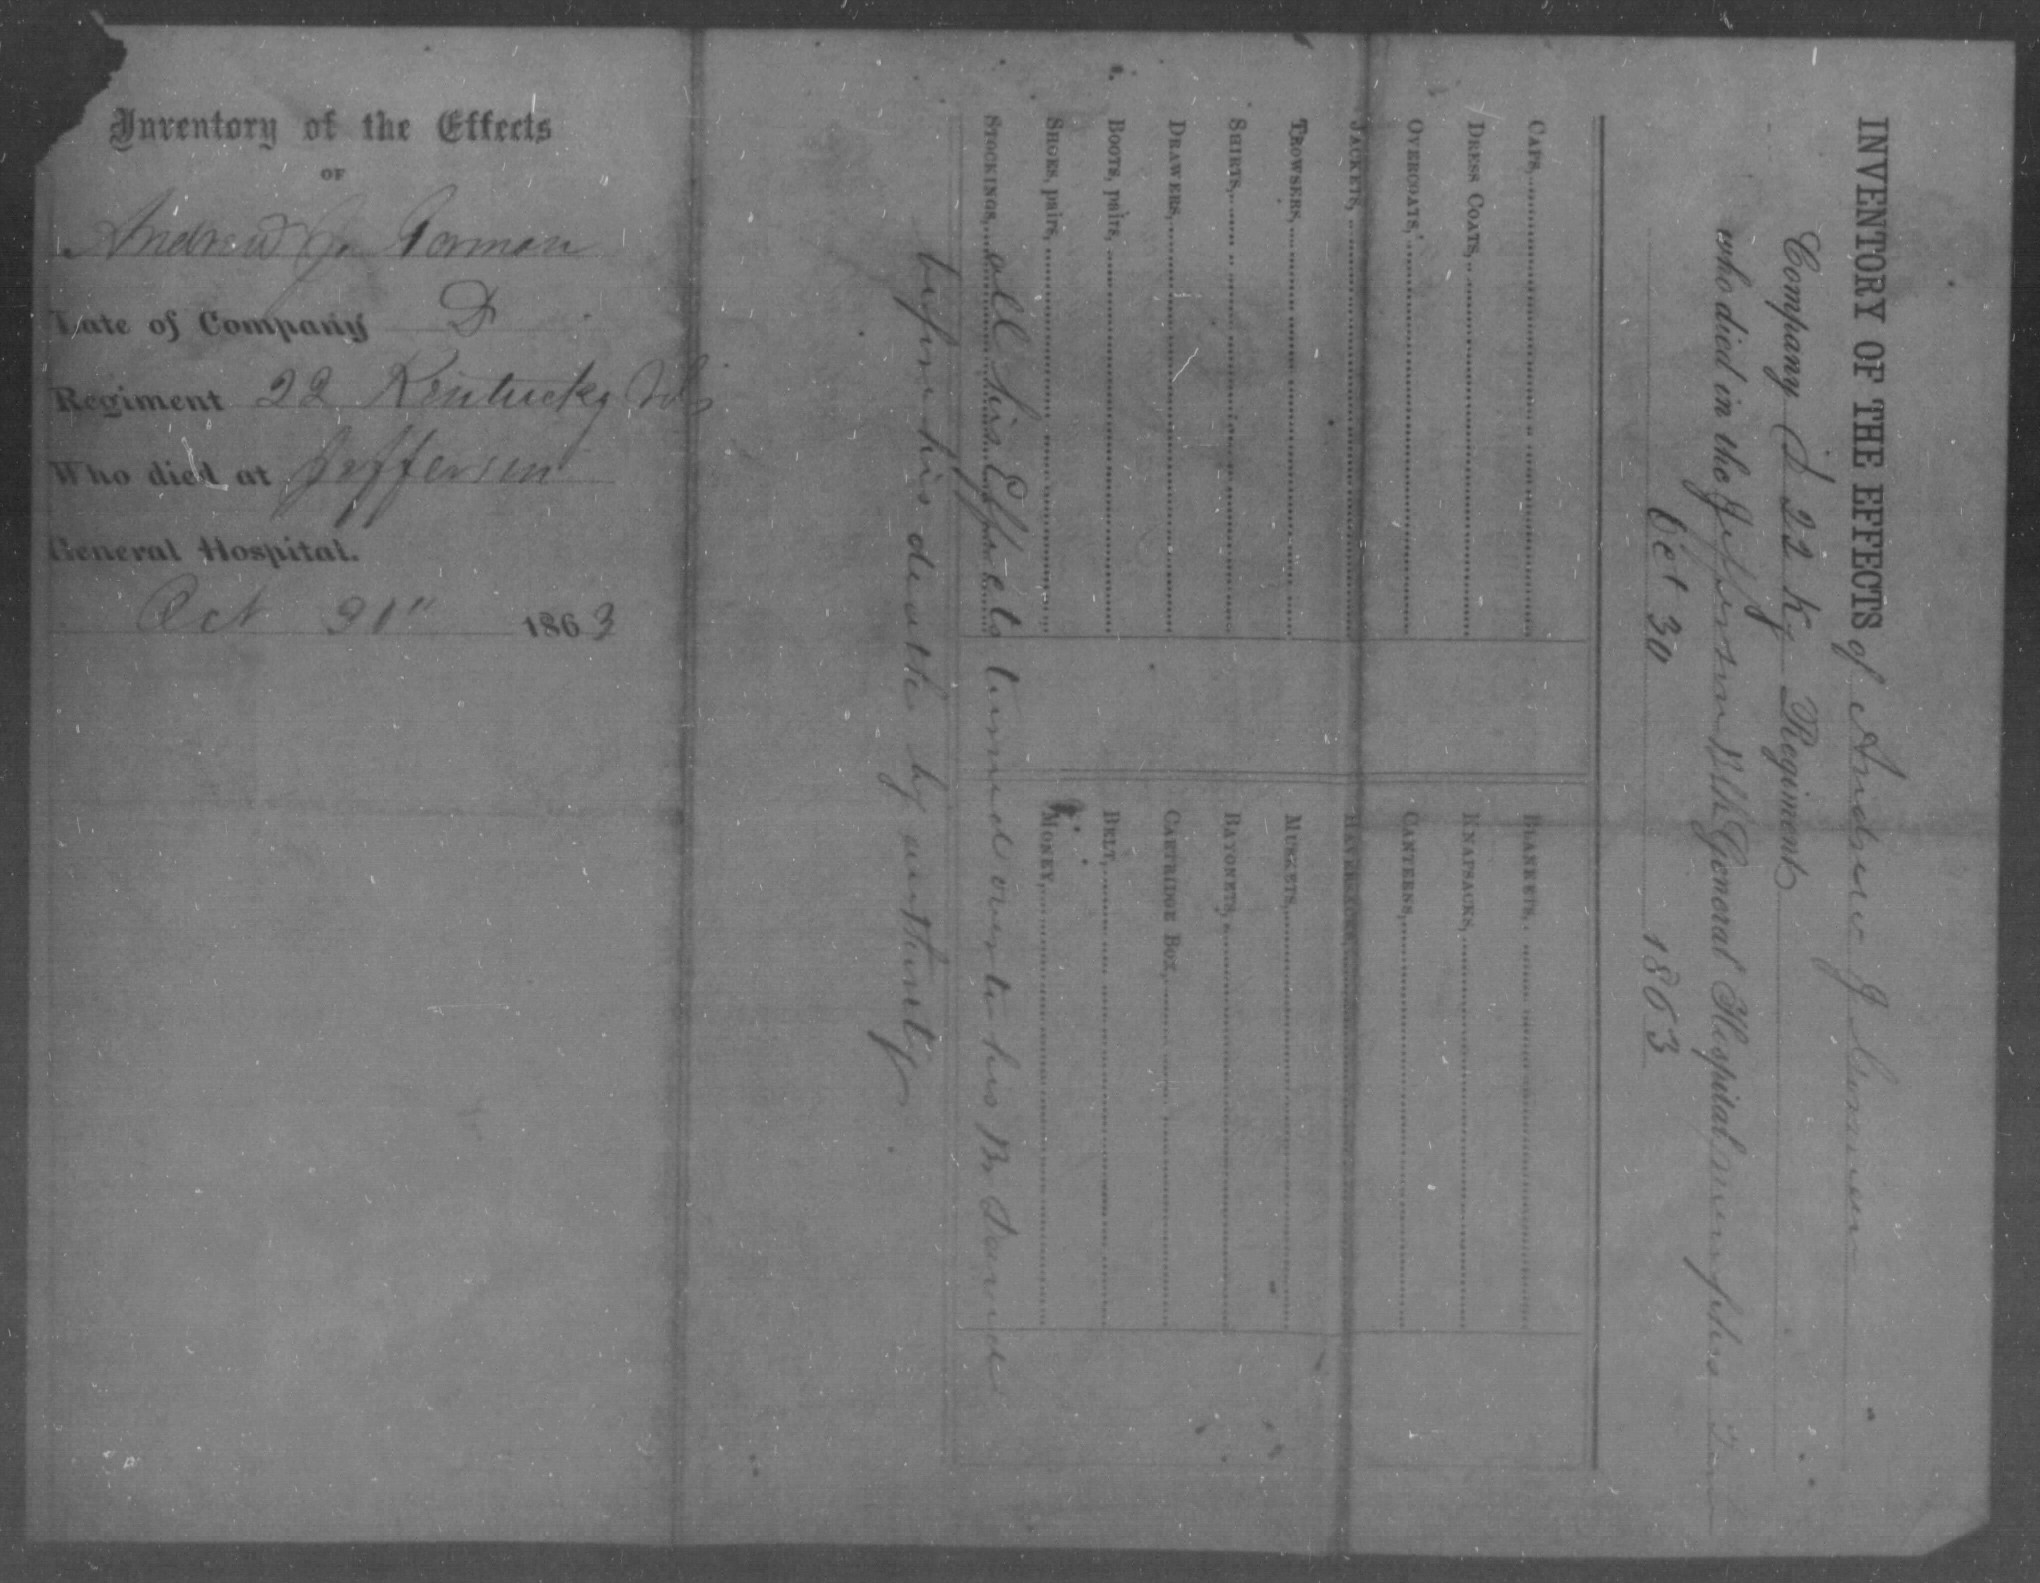 Inventory of the Effects
OF
Andrew J. Gorman
Late of Company D
Regiment 22 Kentucky Vols
Who died at Jefferson
General Hospital.
Oct 31" 1863
INVENTORY OF THE EFFECTS of Andrew J Gorman
Company D 22 Ky Regiment
who died in the Jefferson USA General Hospital Memphis Ten
Oct 30 1863
CAPS,
DRESS COATS,
OVERCOATS,
JACKETS,
TROWSERS,
SHIRTS,
DRAWERS,
BOOTS, pairs,
SHOES, pairs,
STOCKINGS,
BLANKETS,
KNAPSACKS,
CANTEENS,
HAVERSACKS,
MUSKETS,
BAYONETS,
CARTRIDGE BOX,
BELT,
MONEY,
all his Effects turned over to his
before his death by authority